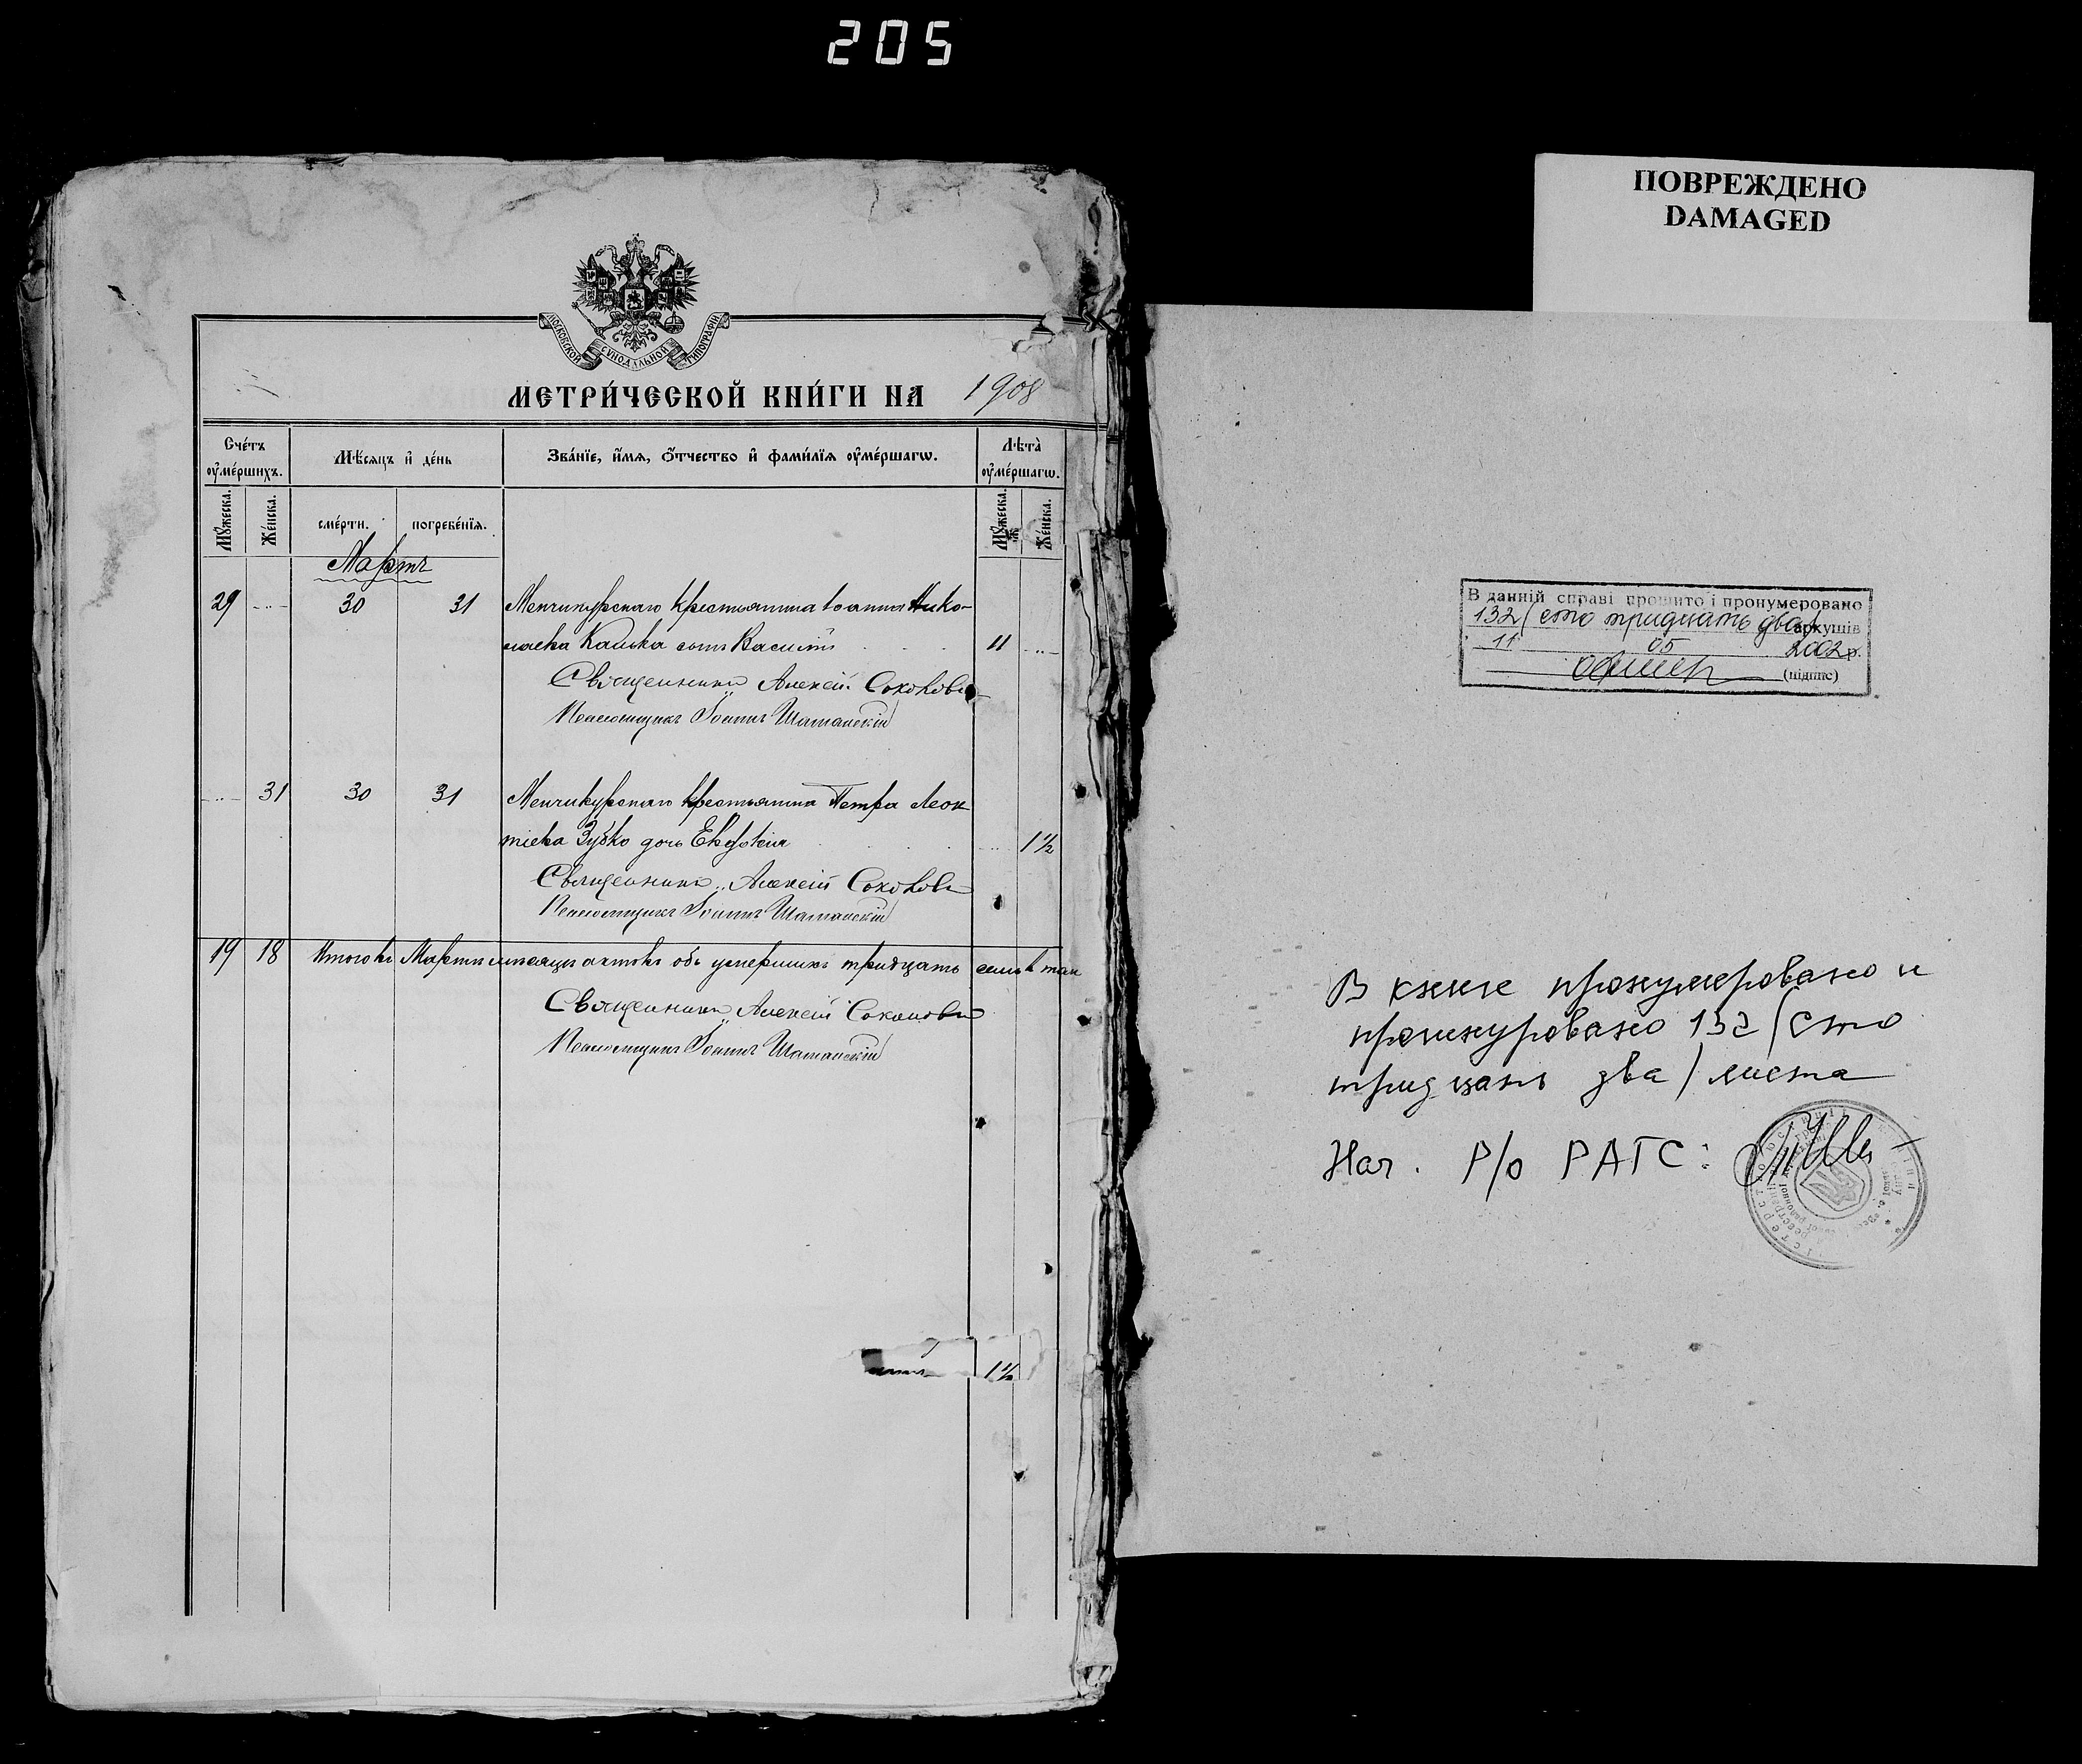 205
ПОВРЕЖДЕНО
DAMAGED
МОСКОВСКОЙ СѴНОДАЛЬНОЙ ТИПОГРАФІИ
МЕТРИ́ЧЕСКОЙ КНИ́ГИ НА 1908
Сче́тъ ᲂумє́ршихъ.
Мѣ́сяцъ и де́нь
Зва́нїе, и́мѧ, ѻ҆́тчество и фами́лїѧ ᲂуме́ршагѡ.
Лѣта̀ ᲂуме́ршагѡ.
Мꙋжеска.
Же́нска.
сме́рти.
погребе́нїѧ.
Мꙋжеска.
Же́нска.
Мартъ
29 -..- 30 31 Менчикурскаго крестьянина Іоанна Нико-
лаева сынъ Василій 11 -..-
Священникъ Алексій Соколовъ
Псаломщикъ Іоаннъ Шатанскій
-..- 31 30 31 Менчикурскаго крестьянина Петра Леон
тіева Зубко дочь Евдокія -..- 1½
Священникъ Алексій Соколовъ
Псаломщикъ Іоаннъ Шатанскій
19 18 Итого въ Мартѣ мѣсяцѣ актовъ объ умершихъ тридцать семь
Священникъ Алексій Соколовъ
Псаломщикъ Іоаннъ Шатанскій
1½
В данній справі прошито і пронумеровано
132/сто тридцать два/ аркушів
11 05 2002 р.
(підпис)
В книге пронумеровано и
прошнуровано 132/сто
тридцать два/ листа
Нач. Р/о РАГС: